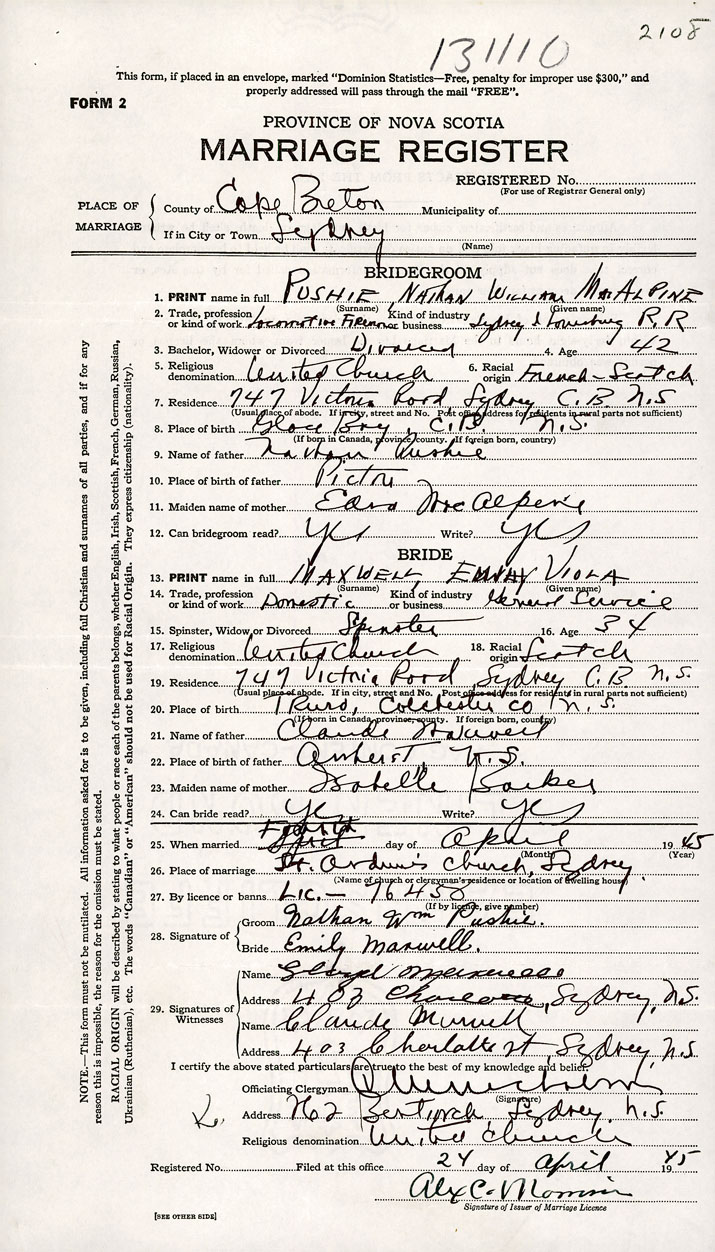 2108
131110
This form, if placed in an envelope, marked "Dominion Statistics—Free, penalty for improper use $300," and
properly addressed will pass through the mail "FREE".
FORM 2
PROVINCE OF NOVA SCOTIA
MARRIAGE REGISTER
REGISTERED No.
(For use of Registrar General only)
PLACE OF MARRIAGE
County of Cape Breton Municipality of
If in City or Town Sydney
(Name)
BRIDEGROOM
1. PRINT name in full PUSHIE, NATHAN WILLIAM MacALPINE
(Surname) (Given name)
2. Trade, profession or kind of work Locomotive Fireman Kind of industry or business Sydney & Louisburg R.R
3. Bachelor, Widower or Divorced Divorced 4. Age 42
5. Religious denomination United Church 6. Racial origin French-Scotch
7. Residence 747 Victoria Road, Sydney C.B. N.S
(Usual place of abode. If in city, street and No. Post office address for residents in rural parts not sufficient)
8. Place of birth Glace Bay, C.B. N.S.
(If born in Canada, province, county. If foreign born, country)
9. Name of father Nathan Pushie
10. Place of birth of father Pictou
11. Maiden name of mother Edna McAlpine
12. Can bridegroom read? Yes Write? Yes
BRIDE
13. PRINT name in full MAXWELL, EMILY VIOLA
(Surname) (Given name)
14. Trade, profession or kind of work Domestic Kind of industry or business General Service
15. Spinster, Widow or Divorced Spinster 16. Age 34
17. Religious denomination United Church 18. Racial origin Scotch
19. Residence 747 Victoria Road, Sydney C.B. N.S.
(Usual place of abode. If in city, street and No. Post office address for residents in rural parts not sufficient)
20. Place of birth Truro, Colchester Co N.S.
(If born in Canada, province, county. If foreign born, country)
21. Name of father Claude Maxwell
22. Place of birth of father Amherst, N.S.
23. Maiden name of mother Isabelle Barker
24. Can bride read? Yes Write? Yes
Fourth
25. When married April day of April 1945
(Month) (Year)
26. Place of marriage St. Andrew's Church, Sydney
(Name of church or clergyman's residence or location of dwelling house)
27. By licence or banns Lic. — 76458
(If by licence, give number)
28. Signature of
Groom Nathan Wm Pushie.
Bride Emily Maxwell.
29. Signatures of Witnesses
Name
Address 403 Charlotte, Sydney, N.S.
Name Claude Maxwell
Address 403 Charlotte st, Sydney, N.S
I certify the above stated particulars are true to the best of my knowledge and belief.
Officiating Clergyman
(Signature)
Address 762 Sydney, N.S.
Religious denomination United Church
Registered No. Filed at this office 24 day of April 1945
Alex C.
Signature of Issuer of Marriage Licence
[SEE OTHER SIDE]
NOTE.—This form must not be mutilated. All information asked for is to be given, including full Christian and surnames of all parties, and if for any
reason this is impossible, the reason for the omission must be stated.
RACIAL ORIGIN will be described by stating to what people or race each of the parents belongs, whether English, Irish, Scottish, French, German, Russian,
Ukrainian (Ruthenian), etc. The words "Canadian" or "American" should not be used for Racial Origin. They express citizenship (nationality).